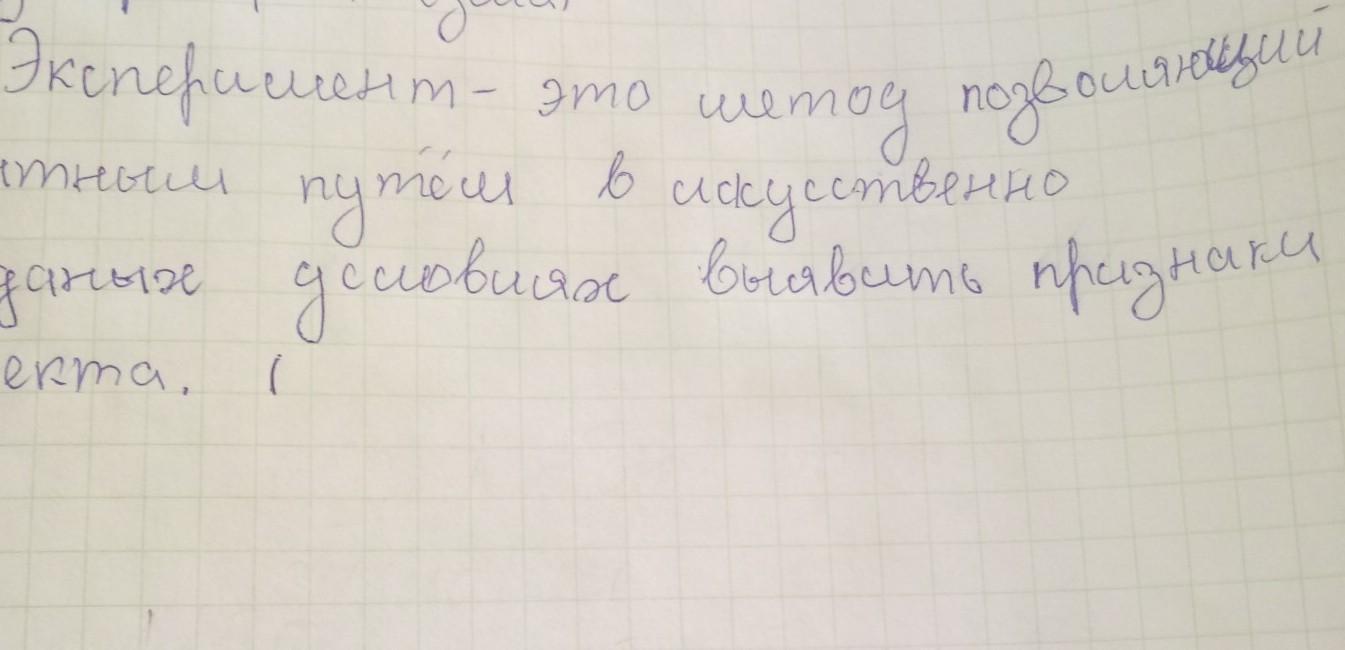 Эксперимент - это метод позволяющий
тным путём в искусственно
даных условиях выявить признаки
екта. (